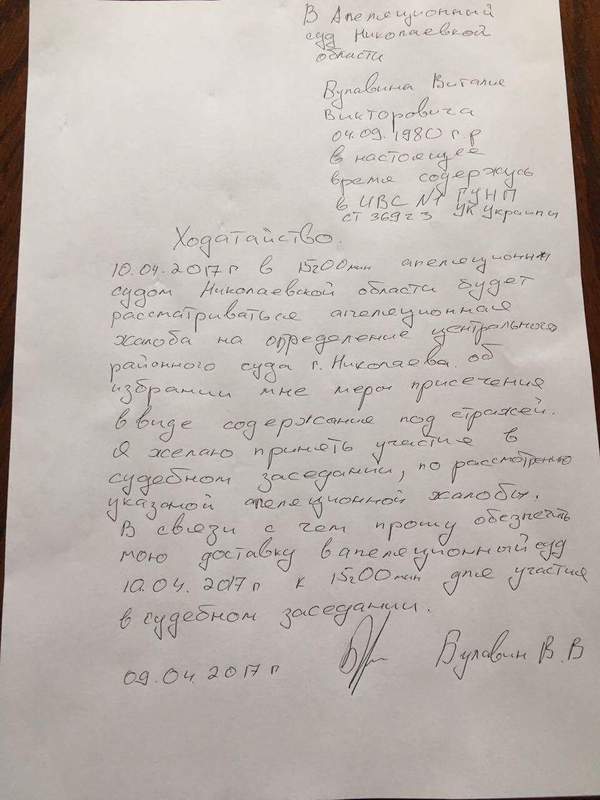 В Апеляционный
суд Николаевкой
области
Вулавина Виталие
Викторовича
04.09.1980 г.р
в настоящее
время содержусь
в ИВС №1 ГУНП
ст 369 ч 3 УК Украины
Ходатайство.
10.04.2017 г в 15г00мин апеляционным
судом Николаевской области будет
рассматриваться апеляционная
жалоба на определение центрального
районного суда г. Николаева. об
избрании мне меры присечения
в виде содержания под стражей.
Я желаю принять участие в
судебном заседании, по рассмотрению
указаной апеляционной жалобы.
В связи с чем прошу обезпечить
мою доставку в апеляционный суд
10.04.2017 г к 15г00мин для участия
в судебном заседании.
09.04.2017 г Вулавин В.В